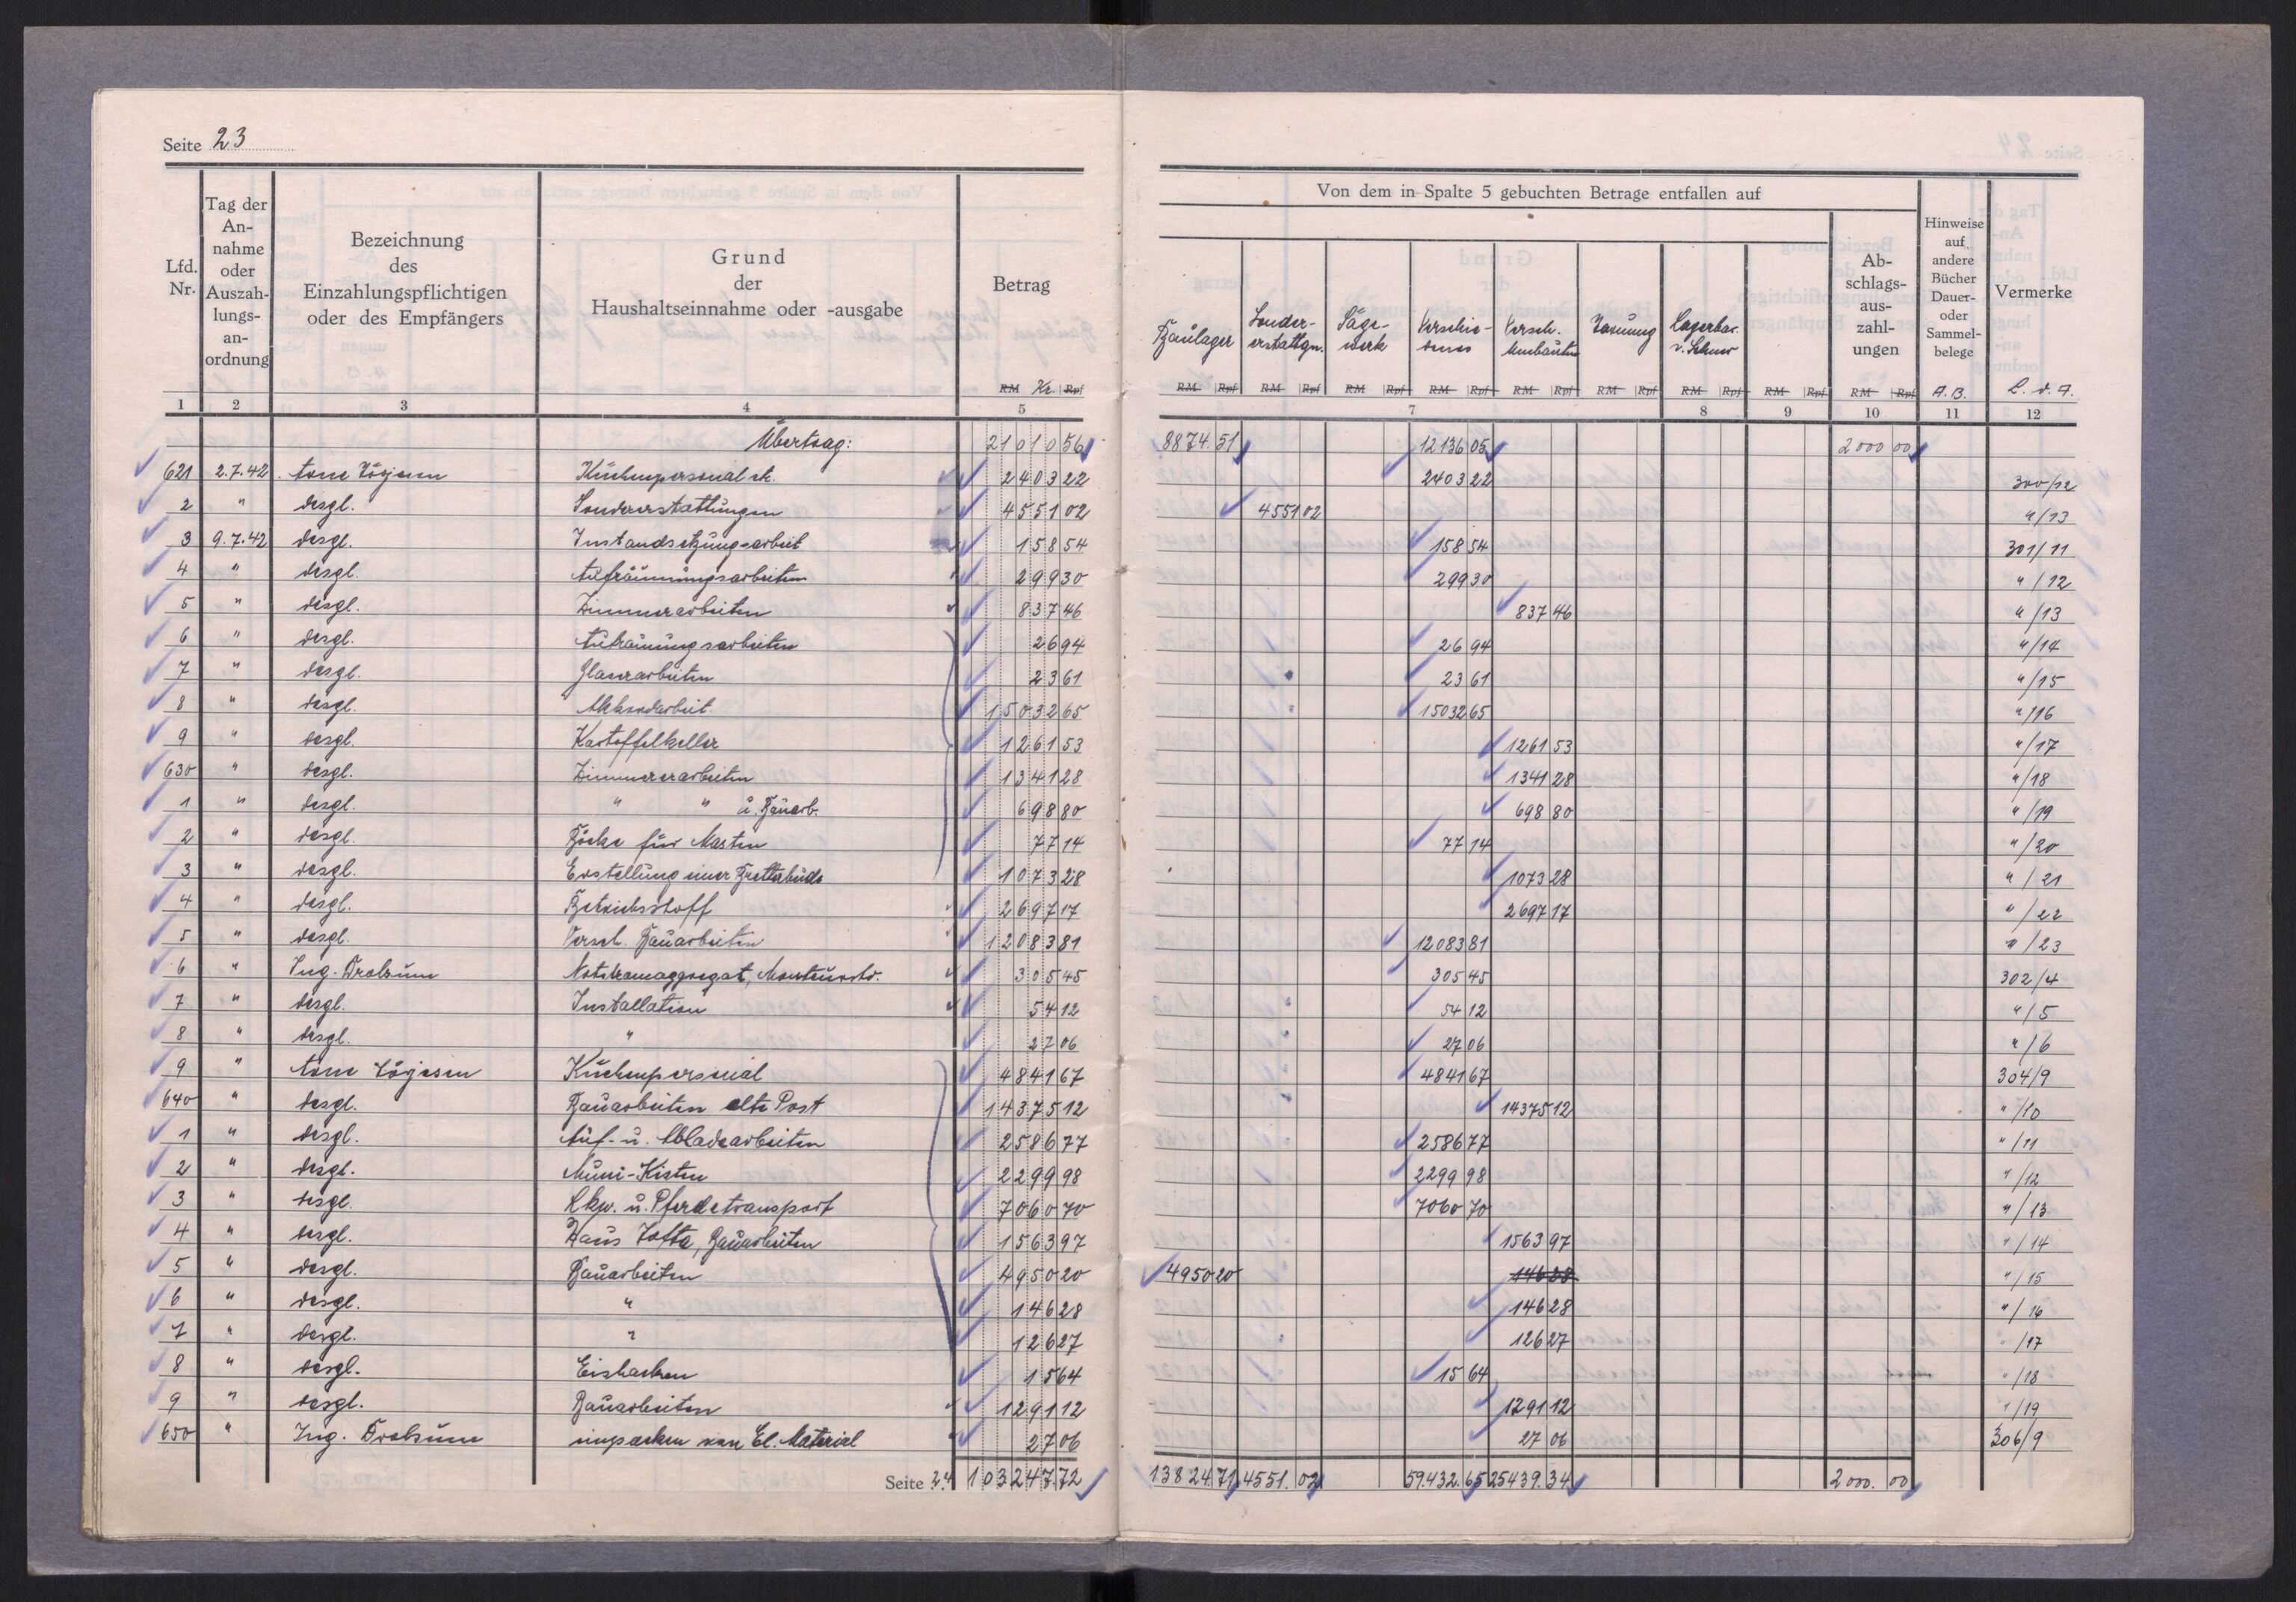 Seite 23
Von dem in Spalte 5 gebuchten Betrage entfallen auf
Lfd. Nr.
Tag der An-nahme oder Auszah-lungs-an-ordnung
Bezeichnung des Einzahlungspflichtigen oder des Empfängers
Grund der Haushaltseinnahme oder -ausgabe
Betrag
RM Kr. Rpf
Baulager
Sonder-erstattgn.
Säge-werk
Verschie-denes
Versch. Umbauten
Ab-schlags-aus-zahl-ungen
Hinweise auf andere Bücher Dauer- oder Sammel-belege
A.B.
Vermerke
L. d. A.
RM Rpf RM Rpf RM Rpf RM Rpf RM Rpf RM Rpf RM Rpf RM Rpf RM Rpf
1 2 3 4 5 7 8 9 10 11 12
Übertrag: 21010 56 8874.51 12136 05 2000 00
621 2.7.42 Küchenpersonal 2403 22 2403 22 300/12
2 " desgl. Sondererstattungen 4551 02 4551 02 "/13
3 9.7.42 desgl. Instandsetzungsarbeit 158 54 158 54 301/11
4 " desgl. Aufräumungsarbeiten 299 30 299 30 "/12
5 " desgl. Zimmerarbeiten 837 46 837 46 "/13
6 " desgl. Aufräumungsarbeiten 26 94 26 94 "/14
7 " desgl. Glaserarbeiten 23 61 23 61 "/15
8 " desgl. Akkordarbeit 15032 65 15032 65 "/16
9 " desgl. Kartoffelkeller 1261 53 1261 53 "/17
630 " desgl. Zimmererarbeiten 1341 28 1341 28 "/18
1 " desgl. " " u. Bauarb. 698 80 698 80 "/19
2 " desgl. Böcke für Masten 77 14 77 14 "/20
3 " desgl. Erstellung einer Bretterbude 1073 28 1073 28 "/21
4 " desgl. Betriebsstoff 2697 17 2697 17 "/22
5 " desgl. Versch. Bauarbeiten 12083 81 12083 81 "/23
6 " Ing. Notstromaggregat, 305 45 305 45 302/4
7 " desgl. Installation 54 12 54 12 "/5
8 " desgl. " 27 06 27 06 "/6
9 " Küchenpersonal 4841 67 4841 67 304/9
640 " desgl. Bauarbeiten alte Post 14375 12 14375 12 "/10
1 " desgl. Auf- u. Abladearbeiten 2586 77 2586 77 "/11
2 " desgl. Muni-Kisten 2299 98 2299 98 "/12
3 " desgl. Lkw. u. Pferdetransport 7060 70 7060 70 "/13
4 " desgl. Haus Tofta, Bauarbeiten 1563 97 1563 97 "/14
5 " desgl. Bauarbeiten 4950 20 4950 20 146 28 "/15
6 " desgl. " 146 28 146 28 "/16
7 " desgl. " 126 27 126 27 "/17
8 " desgl. Eishacken 15 64 15 64 "/18
9 " desgl. Bauarbeiten 1291 12 1291 12 "/19
650 " Ing. einpacken von El. Material 27 06 27 06 306/9
Seite 24 103247.72 13824.71 4551.02 59.432.65 25439.34 2000.00